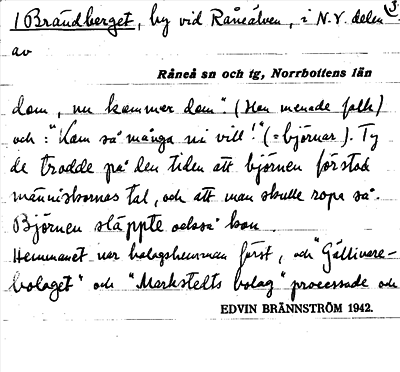 /Brändberget, by vid Råneälven, i N.V. delen 3
av
Råneå sn och tg, Norrbottens län
dom, nu kommer dom" (Han menade folk)
och: "Kom så många ni vill!" (= björnar). Ty
de trodde på den tiden att björnen förstod
människornas tal, och att man skulle ropa så.
Björnen släppte också kon.
Hemmanet var bolagshemman först, och "Gällivare-
bolaget" och "Markstedts bolag" processade om
EDVIN BRÄNNSTRÖM 1942.